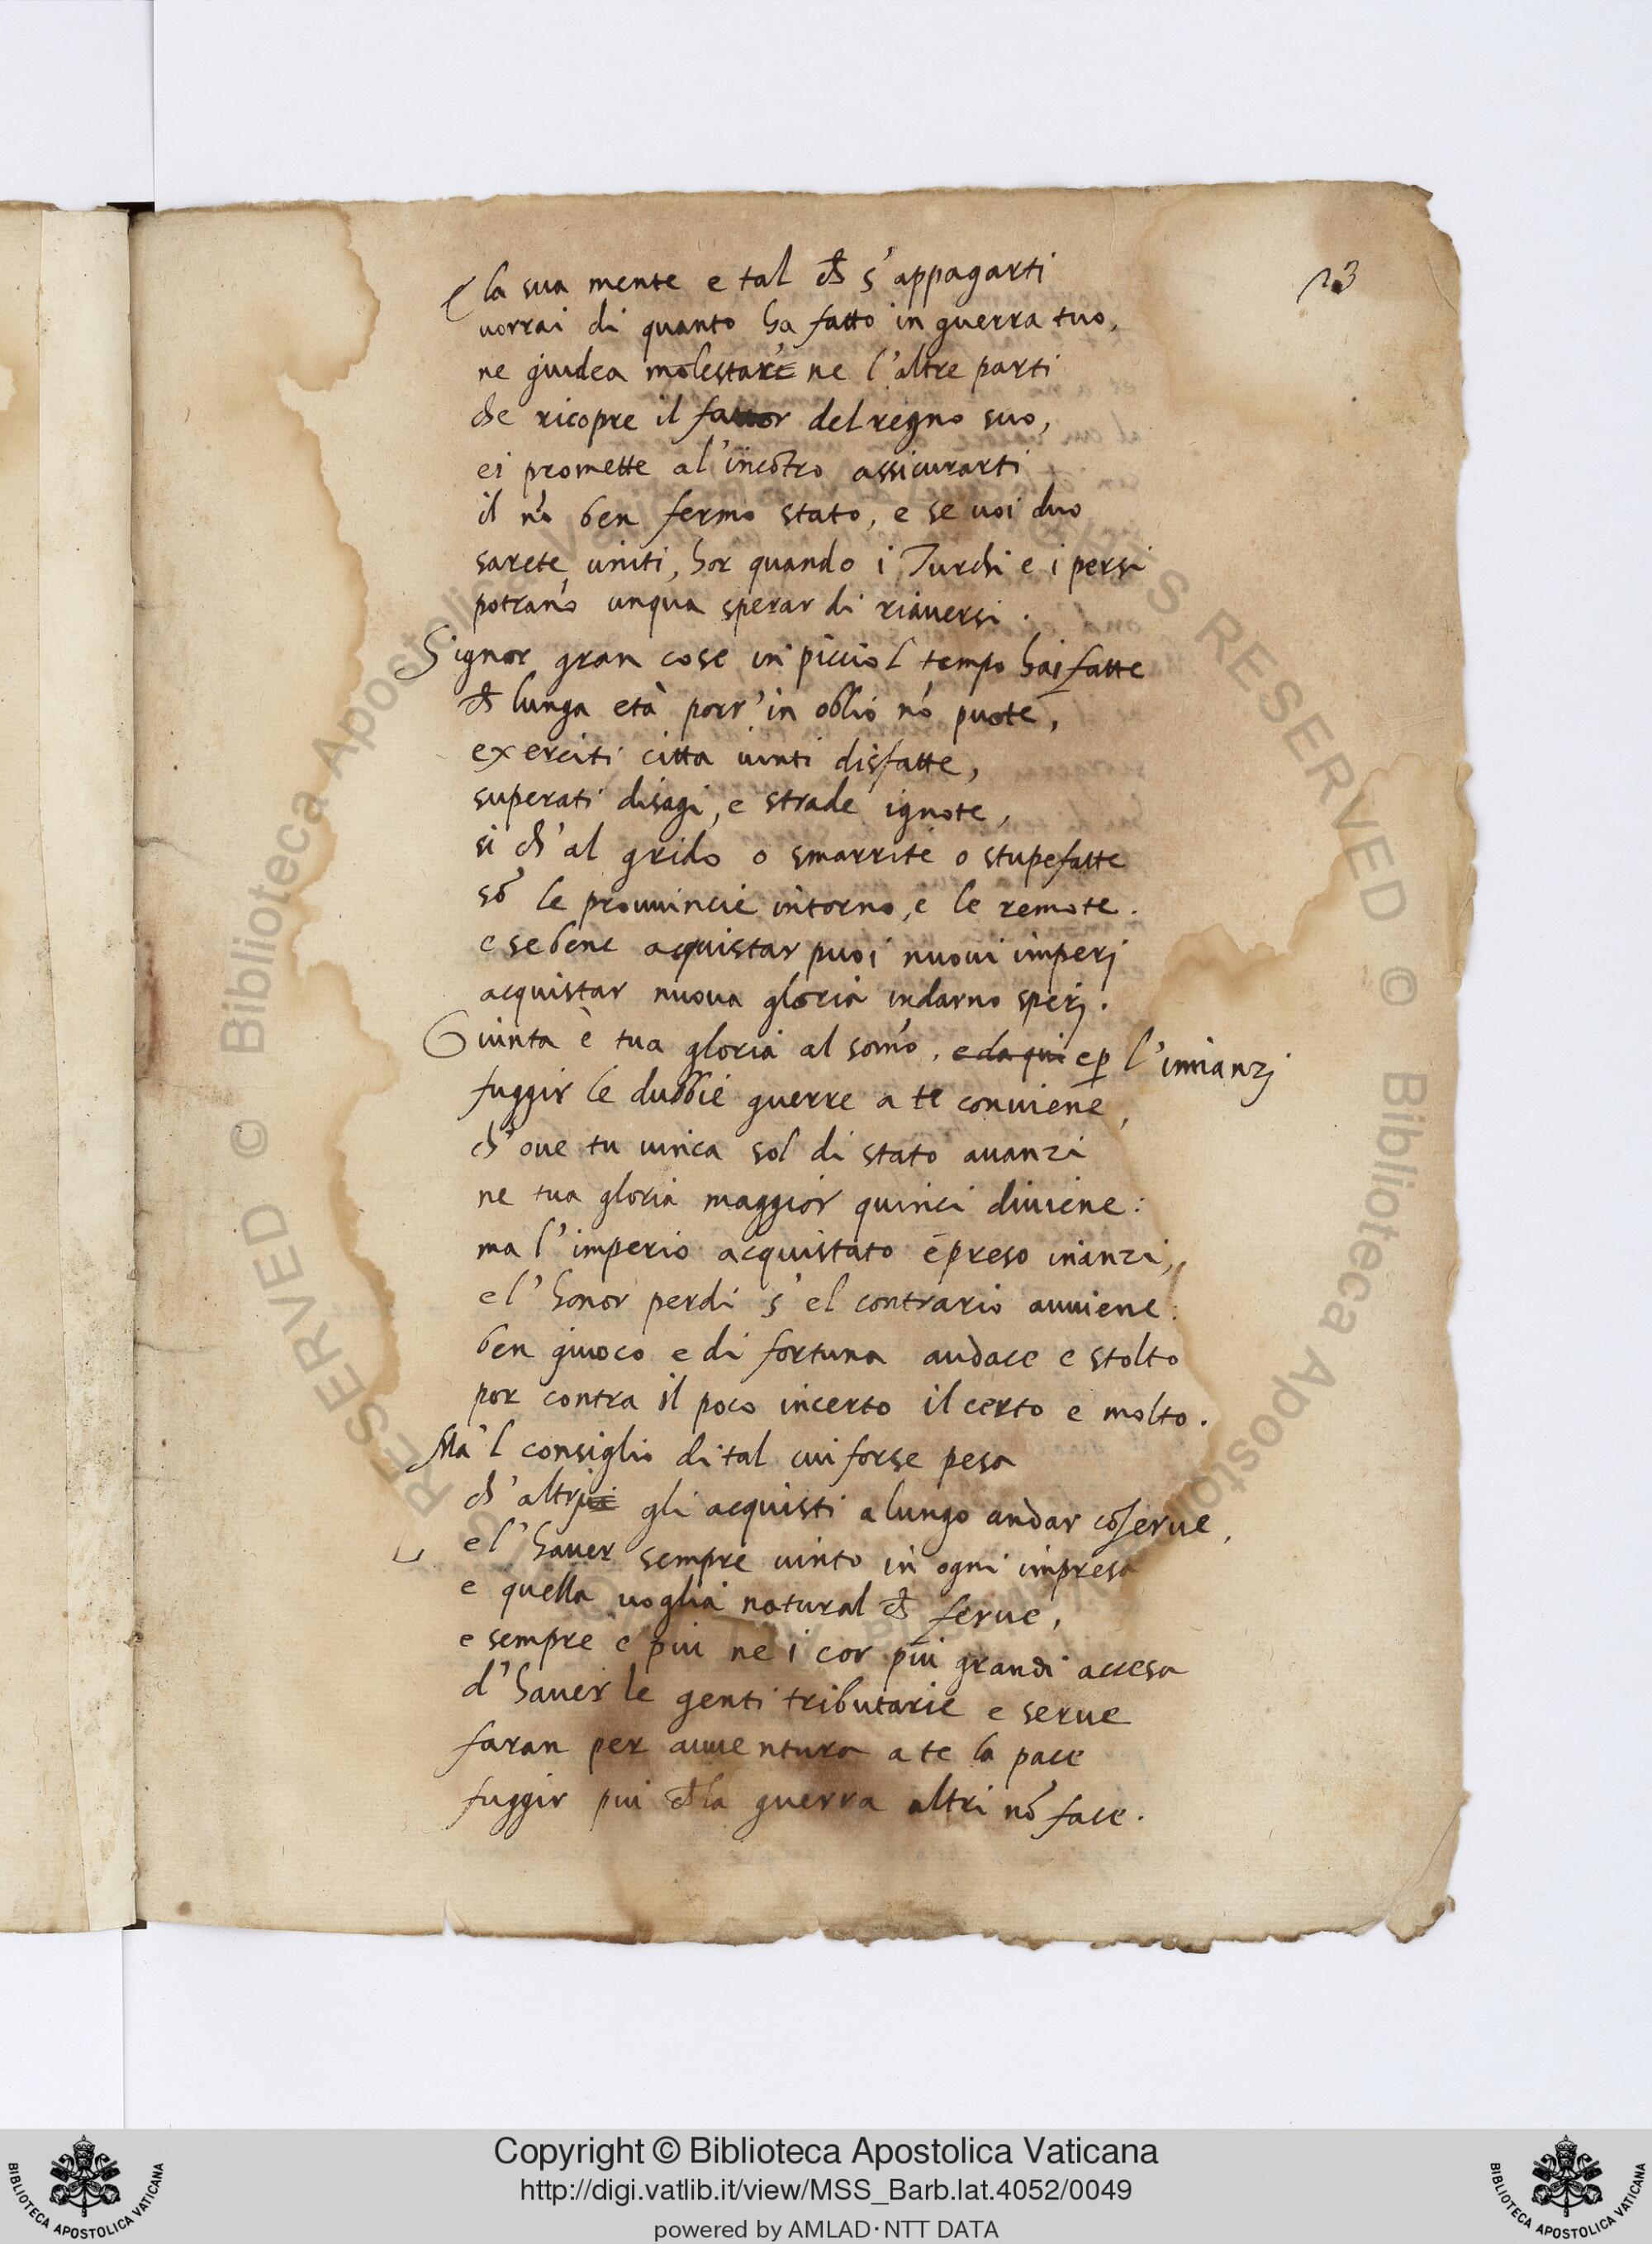 23
E la sua mente e tal ch̃ s'appagarti
uorrai di quanto ha fatto in guerra tuo,
ne giudea molestare ne l'altre parti
che ricopre il fauor del regno suo,
ei promette al'incõtro assicurarti
il nõ ben fermo stato, e se uoi duo
sarete uniti, hor quando i Turchi e i persi
potrano unqua sperar di riauersi.
Signor gran cose in picciol tempo hai fatte
ch̃ lunga età porr'in oblio nõ puote,
exerciti citta uinti disfatte,
superati disagi, e strade ignote,
si ch'al grido o smarrite o stupefatte
sõ le prouuincie intorno, e le remote.
e se bene acquistar puoi nuoui imperj
acquistar nuoua gloria indarno sperj.
Giunta è tua gloria al somo, e da qui e p̱ l'innanzj
fuggir le dubbie guerre a te conuiene,
ch'oue tu uinca sol di stato auanzi
ne tua gloria maggior quinci diuiene:
ma l'imperio acquistato e preso inanzi,
e l'honor perdi s'el contrario auuiene:
ben giuoco e di fortuna audace e stolto
por contra il poco incerto il certo e molto.
Ma'l consiglio di tal cui forse pesa
ch'altri gli acquisti a lungo andar cõserue,
e l'hauer sempre uinto in ogni impresa
e quella uoglia natural ch̃ ferue,
e sempre è piu ne i cor piu grandi accesa
d'hauer le genti tributarie e serue
faran per auuentura a te la pace
fuggir piu ch̃ la guerra altri nõ face.
Copyright © Biblioteca Apostolica Vaticana
http://digi.vatlib.it/view/MSS_Barb.lat.4052/0049
powered by AMLAD·NTT DATA